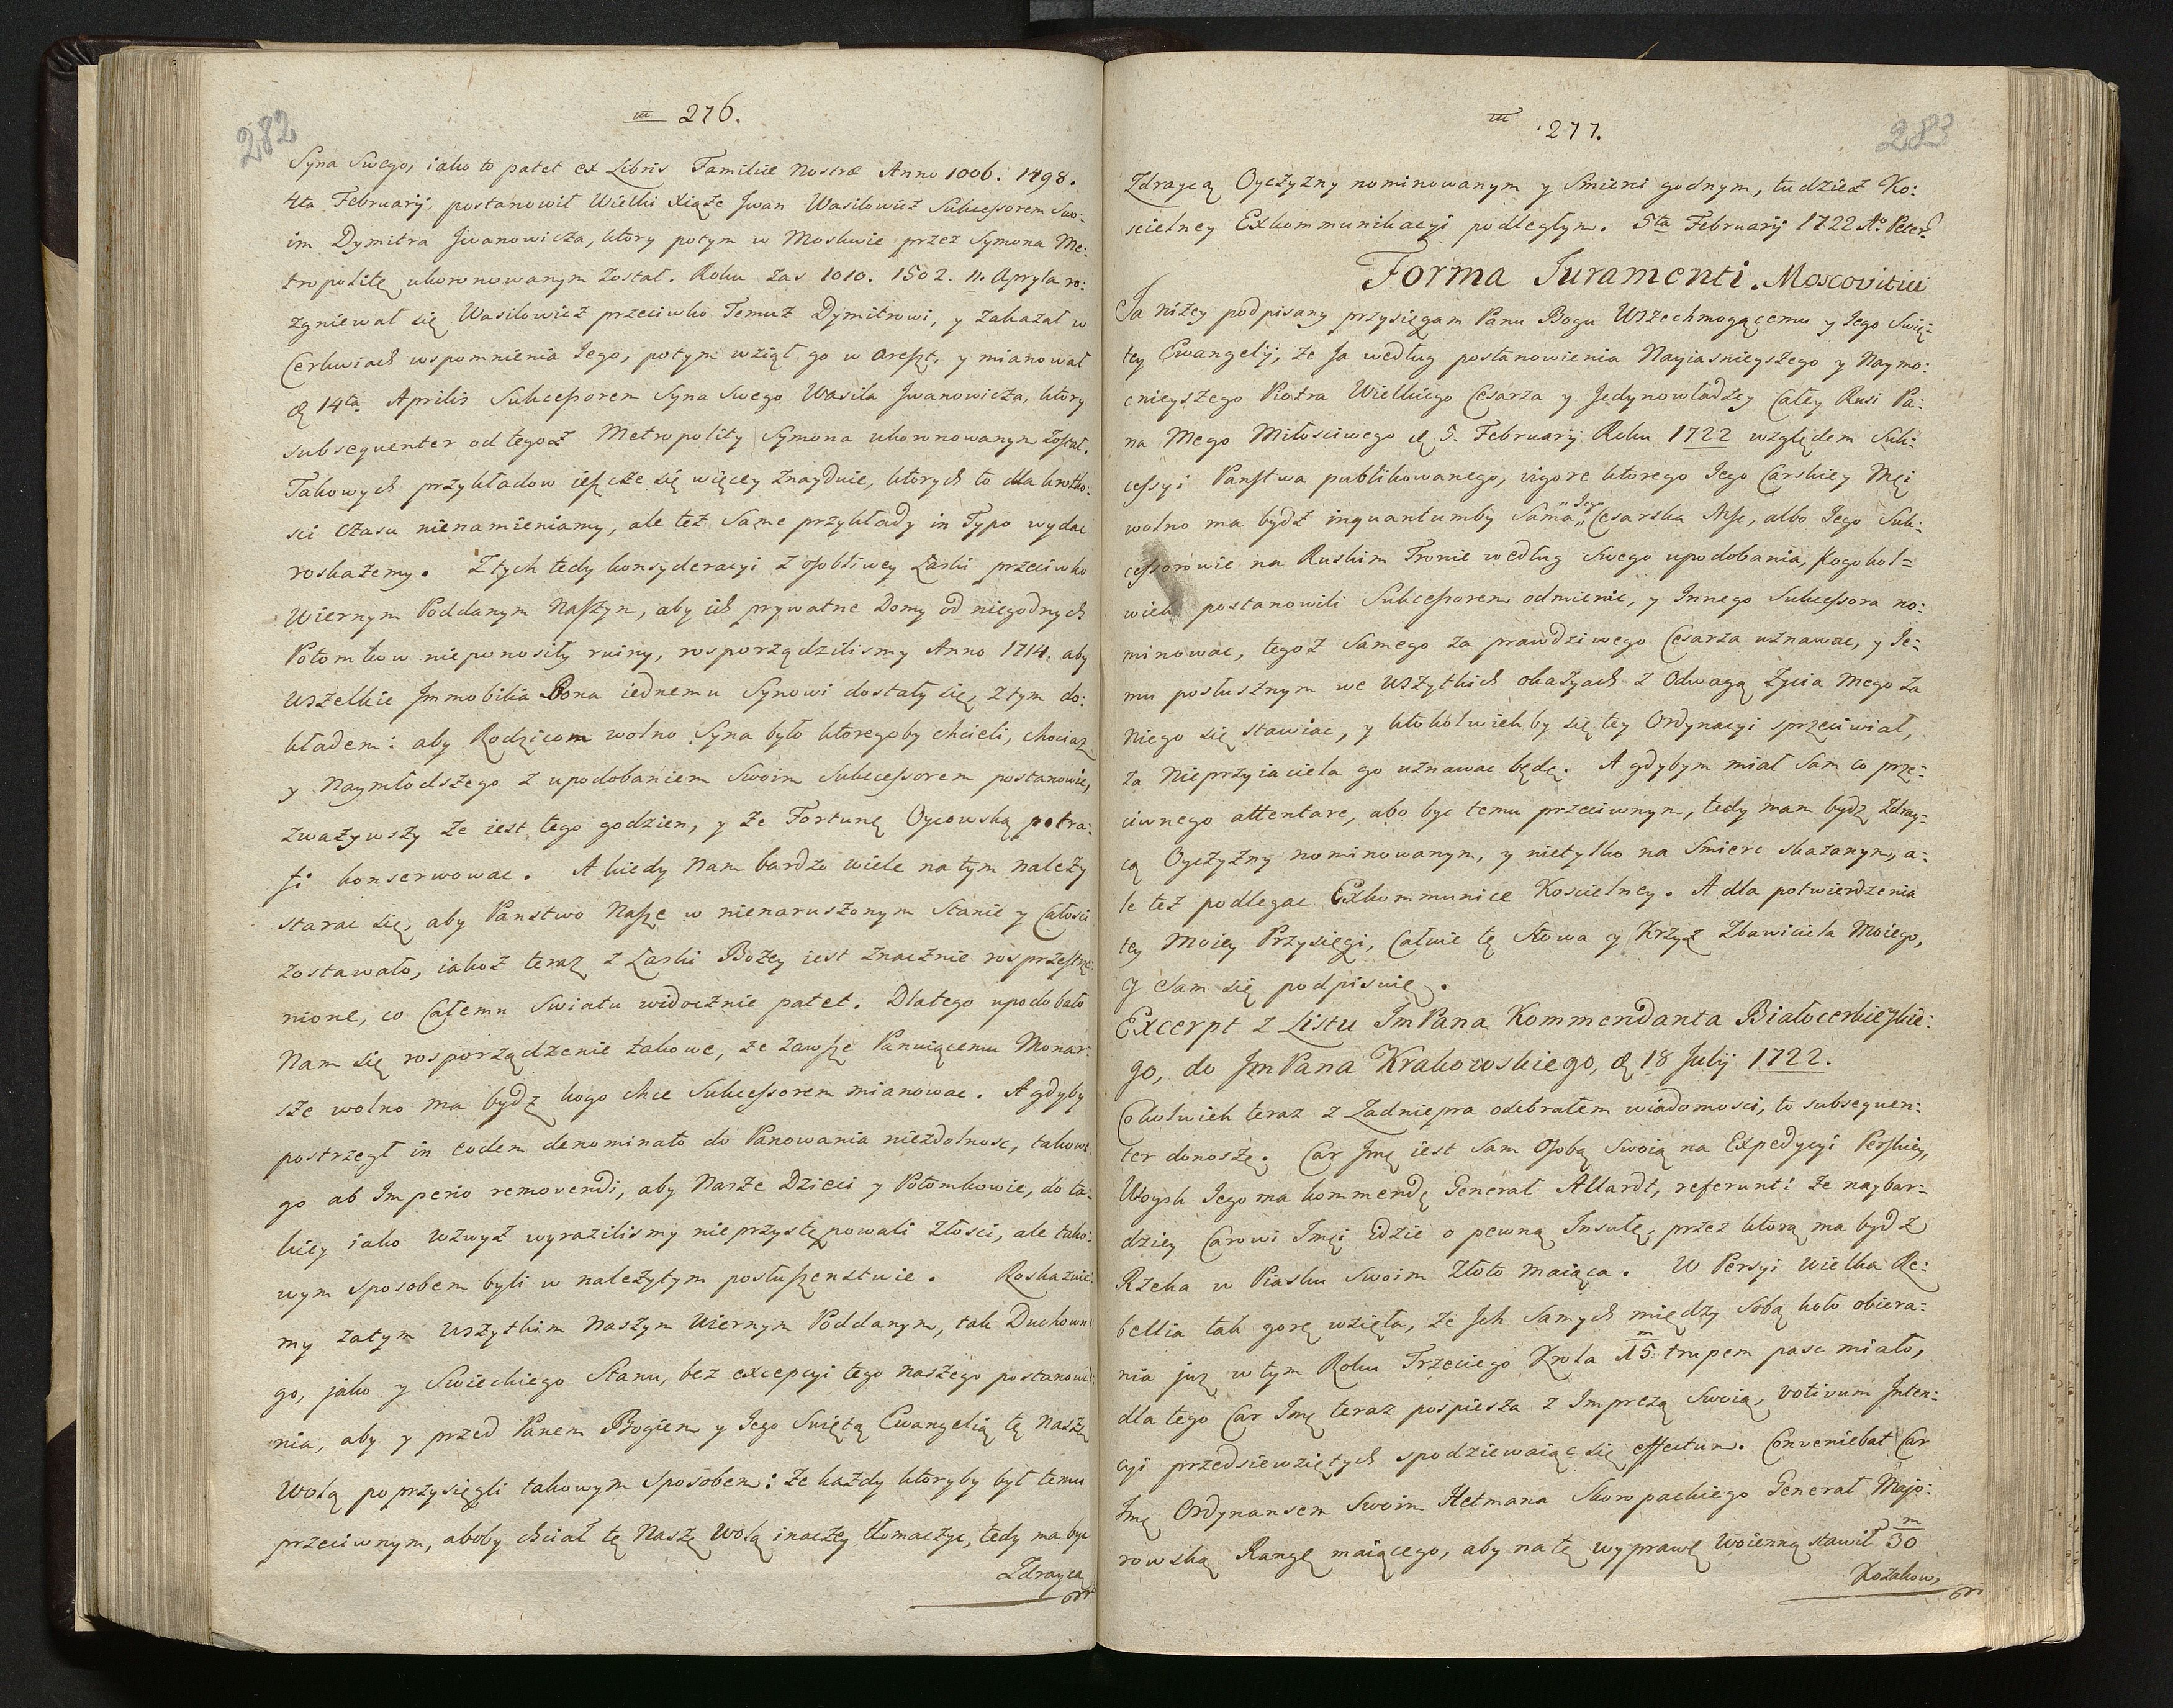 282
m 276.
Syna Swego, iako to patet ex Libris Familiæ Nostræ Anno 1006. 1498.
4ta Februarij, postanowił Wielki Xiąże Jwan Wasilowicz Sukcessorem Swo:
im Dymitra Jwanowicza, ktory potym w Moskwie przez Symona Me:
tropolitę ukoronowanym został. Roku zas 1010. 1502. 11. Apryla ro:
zgniewał się Wasilowicz przeciwko Temuż Dymitrowi, y zakazał w
Cerkwiach wspomnienia Iego, potym wziął go w areszt, y mianował
d. 14ta Aprilis Sukcessorem Syna Swego Wasila Jwanowicza, ktory
subsequenter od tegoż Metropolity Symona ukoronowanym został.
Takowych przykładow ieszcze się więcey znayduie, ktorych to dla krotko:
sci czasu nienamieniamy, ale też Same przykłady in Typo wydac
roskażemy. Z tych tedy konsyderacyi z osobliwey Łaski przeciwko
Wiernym Poddanym Naszym, aby ich prywatne Domy od niegodnych
Potomkow nieponosiły ruiny, rosporządzilismy Anno 1714. aby
Wszelkie Jmmobilia Bona iednemu Synowi dostały się, z tym do:
kładem: aby Rodzicom wolno Syna było ktoregoby chcieli, chociaz
y Naymłodszego z upodobaniem Swoim Sukcessorem postanowic,
zwazywszy ze iest tego godzien, y ze Fortunę Oycowską potra:
fi konserwowac. A kiedy Nam bardzo wiele na tym nalezy
starac się, aby Panstwo Nasze w nienaruszonym Stanie y Całosci
zostawało, iakoż teraz z Łaski Bozey iest znacznie rosprzestrze:
nione, co Całemu Swiatu widocznie patet. Dlatego upodobało
Nam się rosporządzenie takowe, ze zawsze Panuiącemu Monar:
sze wolno ma bydz kogo chce Sukcessorem mianowac. A gdyby
postrzegł in eodem denominato do Panowania niezdolnosc, takowe:
go ab Imperio removendi, aby Nasze Dzieci y Potomkowie, do ta:
kiey iako wzwyż wyrazilismy nieprzystępowali złosci, ale tako:
wym sposobem byli w nalezytym posłuszenstwie. Roskazuie:
my zatym wszytkim Naszym Wiernym Poddanym, tak Duchowne
go, jako y Swieckiego Stanu, bez excepcyi tego naszego postanowie
nia, aby y przed Panem Bogiem y Iego Swiętą Ewangelią tę naszę
Wolą poprzysięgli takowym Sposobem: ze kazdy ktoryby był temu
przeciwnym, aboby chciał tę Naszę Wolą inaczey tłomaczyc, tedy ma byc
Zdraycą
283
m 277.
Zdraycą Oyczyzny nominowanym y Smierci godnym, tudzież Ko:
scielney Exkommunikacyi podległym. 5ta Februarij 1722 Aº. Peter:
Forma Iuramenti. Moscovitici
Ja niżey podpisany przysięgam Panu Bogu Wszechmogącemu y Iego Swię:
tey Ewangelij, ze Ja według postanowienia Nayiasnieyszego y Naymo:
cnieyszego Piotra Wielkiego Cesarza y Jedynowładzcy Całey Rusi Pa:
na Mego Miłosciwego d. 5. Februarij Roku 1722 względem Suk:
cessyi Panstwa publikowanego, vigore ktorego Iego Carskiey Mci
wolno ma bydz inquantumby Sama „Iego„ Cesarska Msc, albo Iego Suk:
cessorowie na Ruskim Tronie według Swego upodobania, kogokol=
wiek postanowili Sukcessorem odmienic, y Innego Sukcessora no:
minowac, tegoż Samego za prawdziwego Cesarza uznawac, y Ie:
mu posłusznym we wszytkich okazyach z Odwagą Zycia Mego za
Niego się stawiac, y ktokolwiekby się tey Ordynacyi sprzeciwiał,
za Nieprzyiaciela go uznawac będę. A gdybym miał Sam co prze:
ciwnego attentare, abo byc temu przeciwnym, tedy mam bydz Zdray:
cą Oyczyzny nominowanym, y nietylko na Smierc skazanym, a:
le też podlegac Exkommunice Koscielney. A dla potwierdzenia
tey Moiey Przysięgi, Całuie tę Słowa y Krzyż Zbawiciela Moiego,
y Sam się podpisuię.
Excerpt z Listu JmPana Kommendanta Białocerkieskie:
go, do JmPana Krakowskiego, d. 18 Julij 1722.
Cokolwiek teraz z Zadniepra odebrałem wiadomosci, to subsequen:
ter donoszę. Car Jmę iest Sam Osobą Swoią na Expedycyi Perskiey,
Woysk Iego ma kommendę Generał Allardt, referunt: ze naybar:
dziey Carowi Jmci idzie o pewną Insułę, przez ktorą ma bydz
Rzeka w Piasku Swoim złoto maiąca. W Persyi wielka Re:
bellia tak gorę wzięła, ze Jch Samych między Sobą koło obiera:
nia juz w tym Roku Trzeciego Krola 15 m trupem pasc miało,
dla tego Car Jmę teraz pospiesza z Imprezą Swoią, votivum Inten:
cyi przedsiewziętych spodziewaiąc się effectum. Conveniebat Car
Jmę Ordynansem Swoim Hetmana Skoropackiego Generał Majo:
rowską Rangę maiącego, aby na tę wyprawę woienną stawił 30 m
Kozakow,